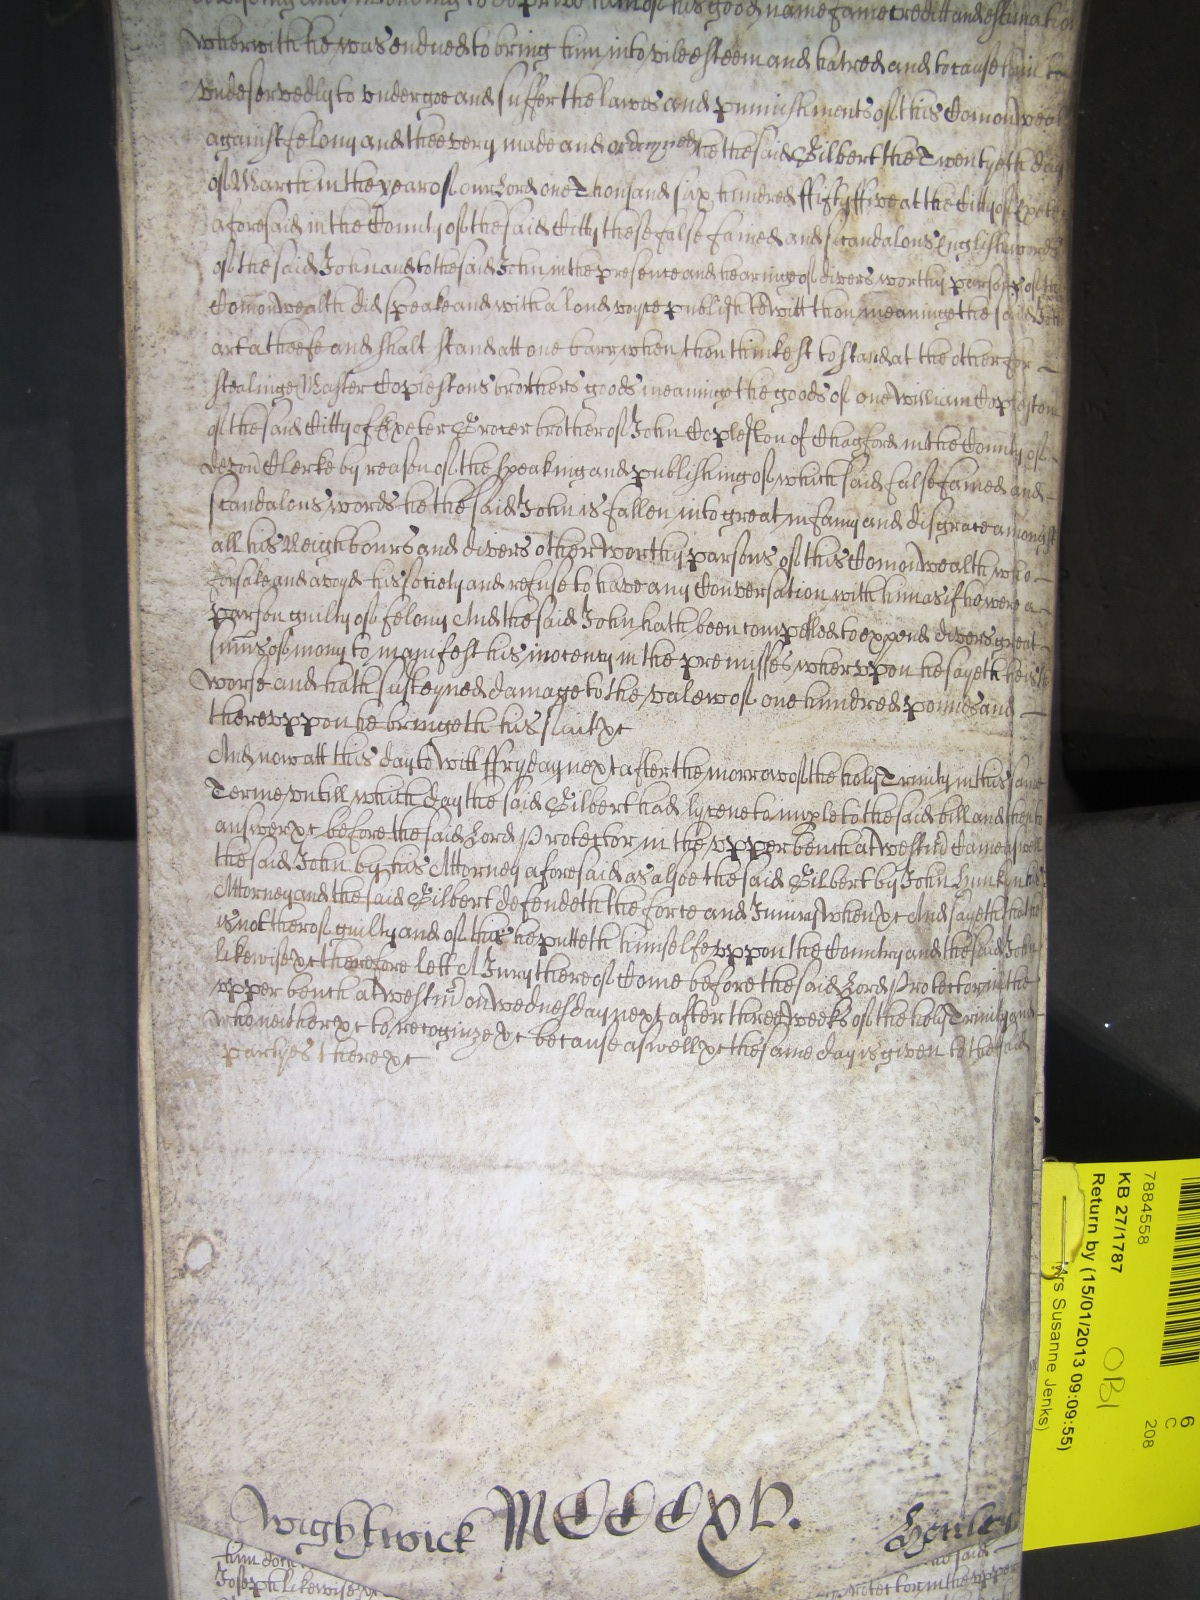 to deprive him of his good name fame creditt and estimation
wherwith he was endued to bring him into vile esteem and hatred and to cause him to
undeservedly to undergoe and suffer the lawes and punnishments of this Comonwealth
against felony and theevery made and ordayned he the said Gilbert the Twentyeth day
of March in the year of our Lord one Thousand six hundred ffifty ffive at the Citty of Exeter
aforesaid in the County of the said Citty these false fained and scandalous English words
of the said John and to the said John in the presence and hearinge of divers worthy parsons of this
Comonwealth did speake and with a loud voyce publish to witt thou meaninge the said John
art a theefe and shalt stand att one barr when thou thinkest to stand at the other for
stealinge Master Coplestons brothers goods meaninge the goods of one William Copleston
of the said Citty of Exeter Grocer brother of John Copleston of Chagford in the County of
Devon Clerke by reason of the speaking and publishing of which said false fained and
scandalous words he the said John is fallen into great infamy and disgrace amongst
all his Neighbours and divers other worthy parsons of this Comonwealth who
forsake and avoyd his society and refuse to have any Conversation with him as if he were a
parson guilty of felony And the said John hath been compelled to expend divers great
sums of mony to manifest his inocency in the premisses wherupon he sayeth he is
worse and hath susteyned damage to the valew of one hundred pounds and
thereuppon he bringeth his suit &c
And now att this day to witt ffryday next after the morrow of the holy Trinity in this same
Terme untill which day the said Gilbert had lycence to imple to the said bill and then to
answer &c before the said Lord Protector in the upper bench at Westmr Came aswell
the said John by his Attorney aforesaid as alsoe the said Gilbert by John his
Attorney and the said Gilbert defendeth the force and Injury when &c And sayeth that he
is not therof guilty and of this he putteth himselfe uppon the Country and the said John
likewise &c therefore lett A Jury thereof Come before the said Lord Protector in the
upper bench at Westmr on Wednesday next after three weeks of the holy Trinity and
who neither &c to recognize &c because aswell &c the same day is given to the said
partyes there &c
Wightwick MCCCXV. Henley
him
said
Joseph likewise &c
Protector in the upper
7884558
KB 27/1787
Return by (15/01/2013 09:09:55)
Mrs Susanne Jenks)
OB1
6
C
208